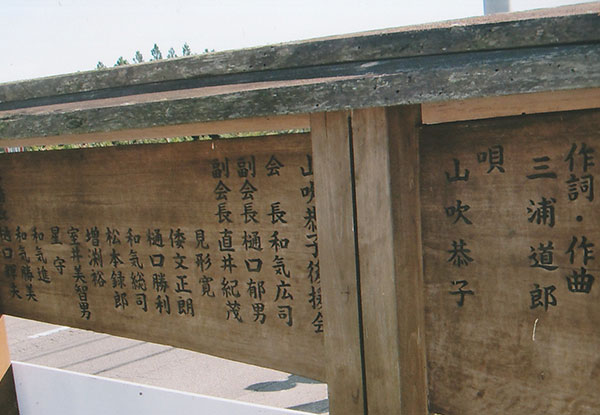 作詞・作曲
三浦道郎
唄
山吹恭子
山吹恭子後援会
会長 和気広司
副会長 樋口郁男
副会長 直井紀茂
見形寛
倭文正朗
樋口勝利
和気総司
松本録郎
増渕裕
室井美智男
星守
和気進
和気勝美
樋口輝夫